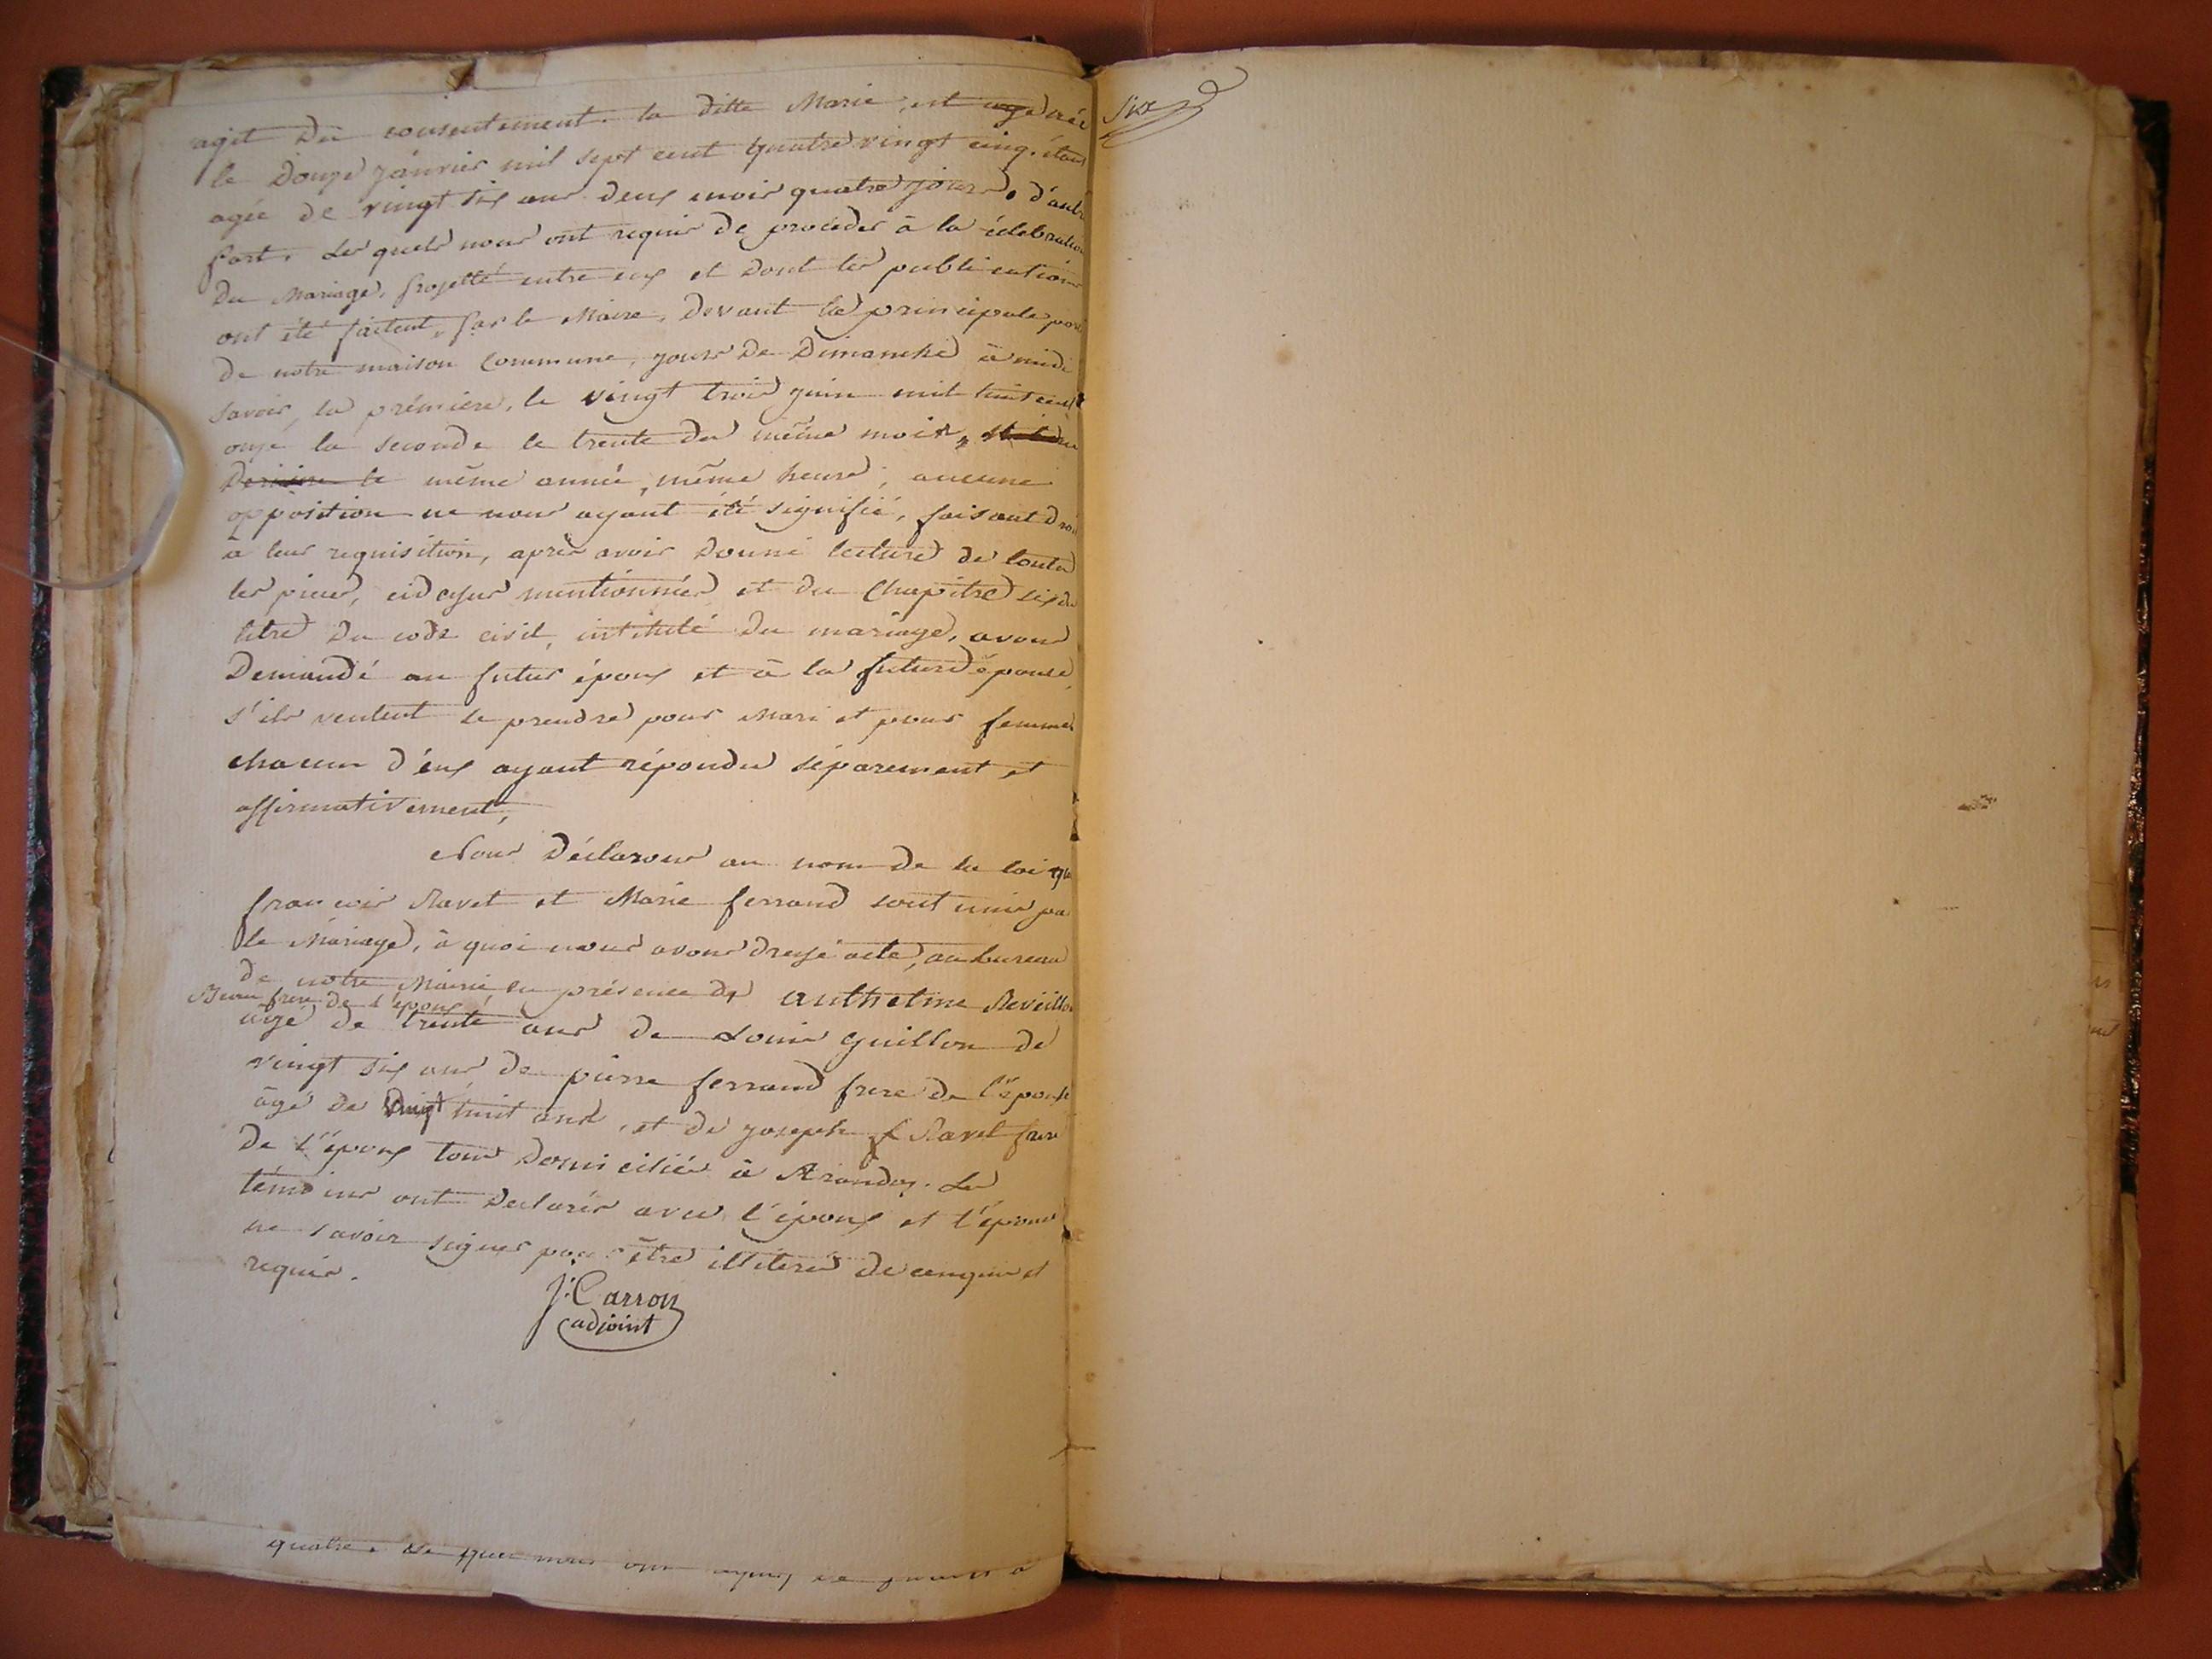 agit du consentement. la ditte Marie, est age née
le douze janvier mil sept cent quatre vingt cinq. étant
agée de vingt six ans deux mois quatre jours, d'autre
part. Les quels nous ont requis de proceder à la célébration
du Mariage, projetté entre eux et dont les publications
ont été faites, par le Maire, devant la principale porte
de notre maison commune, jours de Dimanche à midi
savoir, la première, le vingt trois juin mil huit cent
onze la seconde le trente du même mois,
Dernière le même année, même heure, aucune
opposition ne nous ayant été signifié, faisant droit
a leur requisition, après avoir donné lecture de toutes
les pieces, cidessus mentionnées et du Chapitre six du
titre du code civil, intitulé du mariage, avons
Demandé au futur époux et à la future épouse,
s'ils veulent se prendre pour Mari et pour femme
chacun d'eux ayant répondu séparement et
affirmativement,
Nous Déclarons au nom de la loi que
francois Ravet et Marie ferrand sont unis par
le Mariage, à quoi nous avons dressé acte, au bureau
de notre Mairie en présence de anthelme Reveillon
Beau frere de l'époux
agé de trente ans de Louis Guillon de
vingt six ans de pierre ferrand frere de l'épouse
âgé de vingt huit ans, et de joseph Ravet frere
de l'époux tous domiciliés à Arandas. Les
témoins ont declarés avec l'époux et l'épouse
ne savoir signer pour être illitérés de ce enquis et
requis.
J: Carron
adjoint
Six
quatre. Les quels nous ont